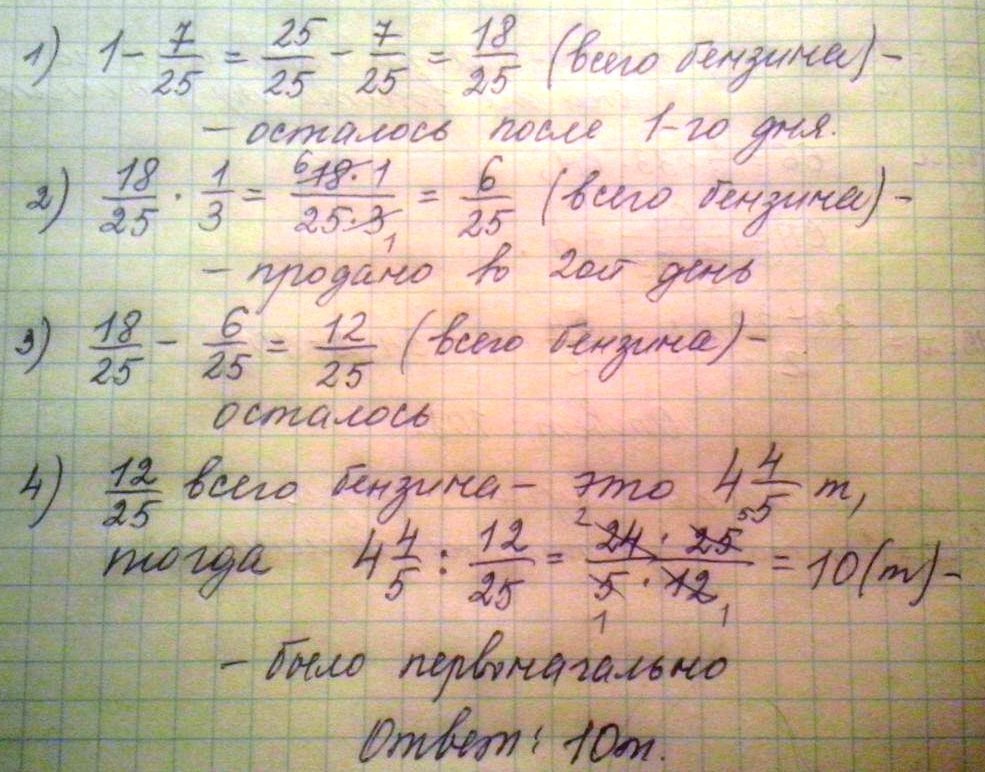 1) 1 - 7/25 = 25/25 - 7/25 = 18/25 (всего бензина) -
- осталось после 1-го дня.
2) 18/25 · 1/3 = 6 18·1/25·3 1 = 6/25 (всего бензина) -
- продано во 2ой день
3) 18/25 - 6/25 = 12/25 (всего бензина) -
осталось
4) 12/25 всего бензина - это 4 4/5 т,
тогда 4 4/5 : 12/25 = 2 24 · 25 5/1 5 · 12 1 = 10 (т) -
- было первоначально
Ответ: 10т.